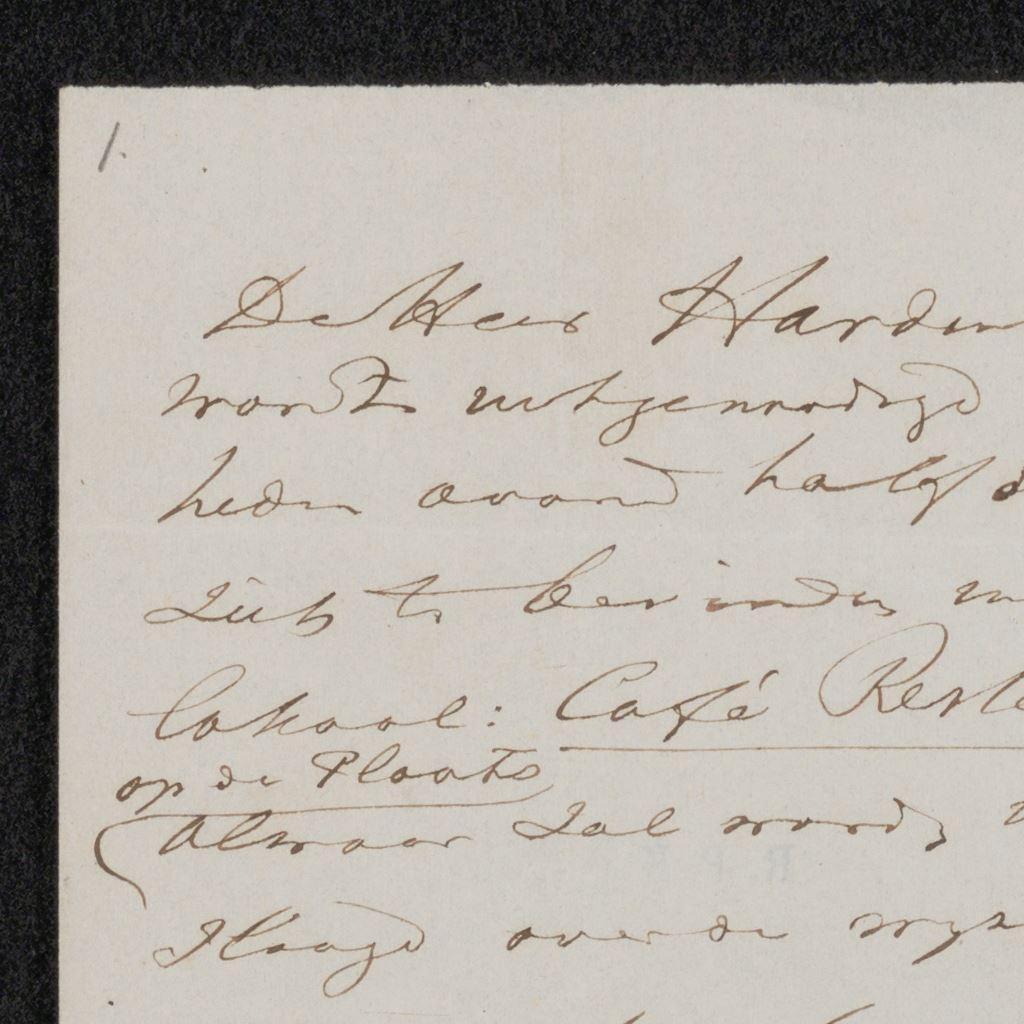 1.
De Heer Hardin
wordt uitgenoodigd
heden avond half
zich te bevinden in
lokaal: Café Resta
op de Plaats
alwaar zal worden
over de wyz